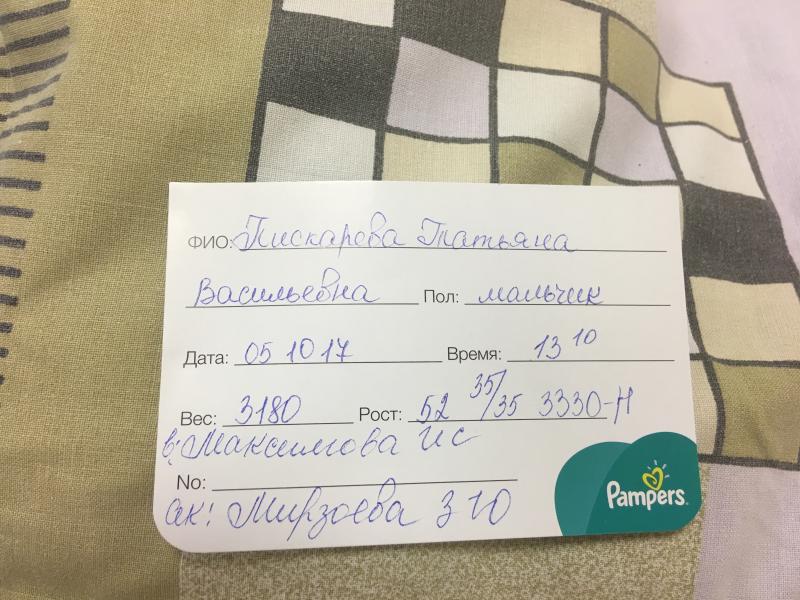 ФИО: Пискарева Татьяна
Васильевна Пол: мальчик
Дата: 05 10 17 Время: 13 10
Вес: 3180 Рост: 52 35/35 3330-Н
в: Максимова ИС
No:
ак: Мирзоева З Ю
Pampers